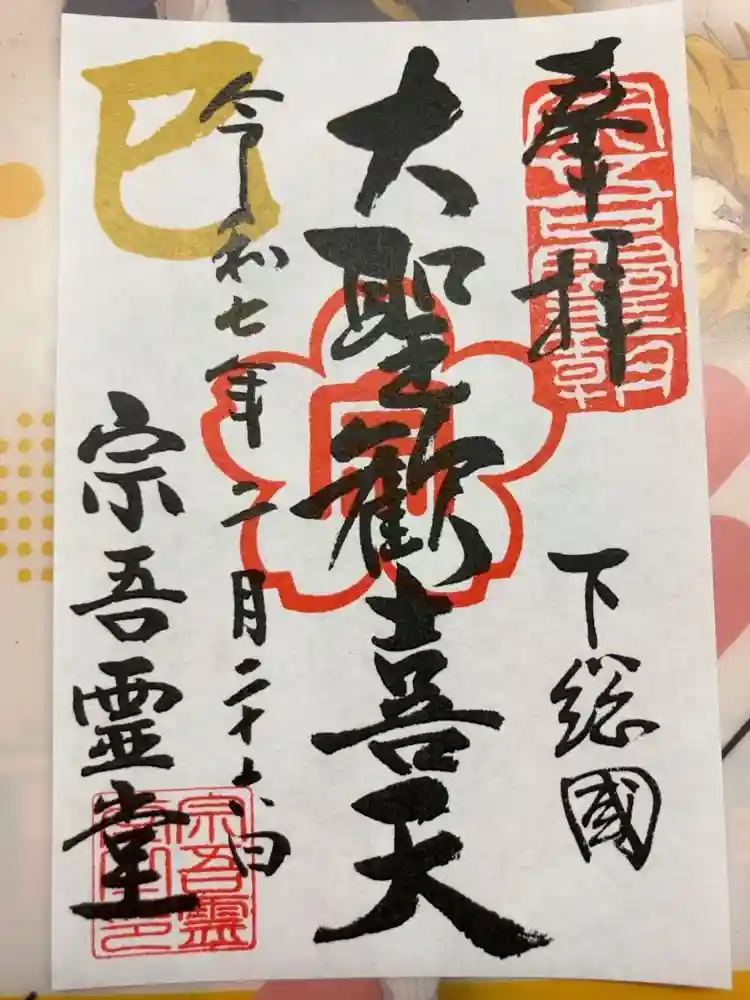 奉拝
下総國
大聖歓喜天
令和七年二月二十六日
宗吾霊堂
巳
宗吾霊